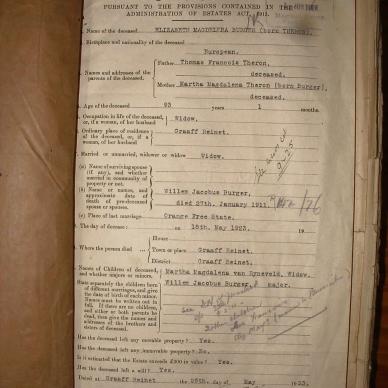 PURSUANT TO THE PROVISIONS CONTAINED IN THE
ADMINISTRATION OF ESTATES ACT, 1911.
Name of the deceased ELIZABETH MAGDALENA BURGER (born THERON).
Birthplace and nationality of the deceased
European.
Names and addresses of the parents of the deceased.
Father Thomas Francois Theron,
deceased.
Mother Martha Magdalena Theron (born Burger),
deceased.
Age of the deceased 93 years 1 months.
Occupation in life of the deceased, or, if a woman, of her husband Widow.
Ordinary place of residence of the deceased, or, if a woman, of her husband Graaff Reinet.
Married or unmarried, widower or widow Widow.
(a) Name of surviving spouse (if any), and whether married in community of property or not.
(b) Name or names, and approximate date of death of pre-deceased spouse or spouses.
Willem Jacobus Burger,
died 27th January 1911.
(c) Place of last marriage Orange Free State.
The day of decease: on 18th May 1923. 19
Where the person died
House
Town or place Graaff Reinet.
District Graaff Reinet.
Names of Children of deceased, and whether majors or minors.
Martha Magdalena van Ryneveld, Widow.
State separately the children born of different marriages, and give the date of birth of each minor. Names must be written out in full. If there are no children, and either or both parents be dead, then give the names and addresses of the brothers and sisters of deceased.
Willem Jacobus Burger, major.
Has the deceased left any movable property? Yes.
Has the deceased left any immovable property? No.
Is it estimated that the Estate exceeds £300 in value? Yes.
Has the deceased left a will? Yes.
Dated at Graaff Reinet the 28th day of May 1923.